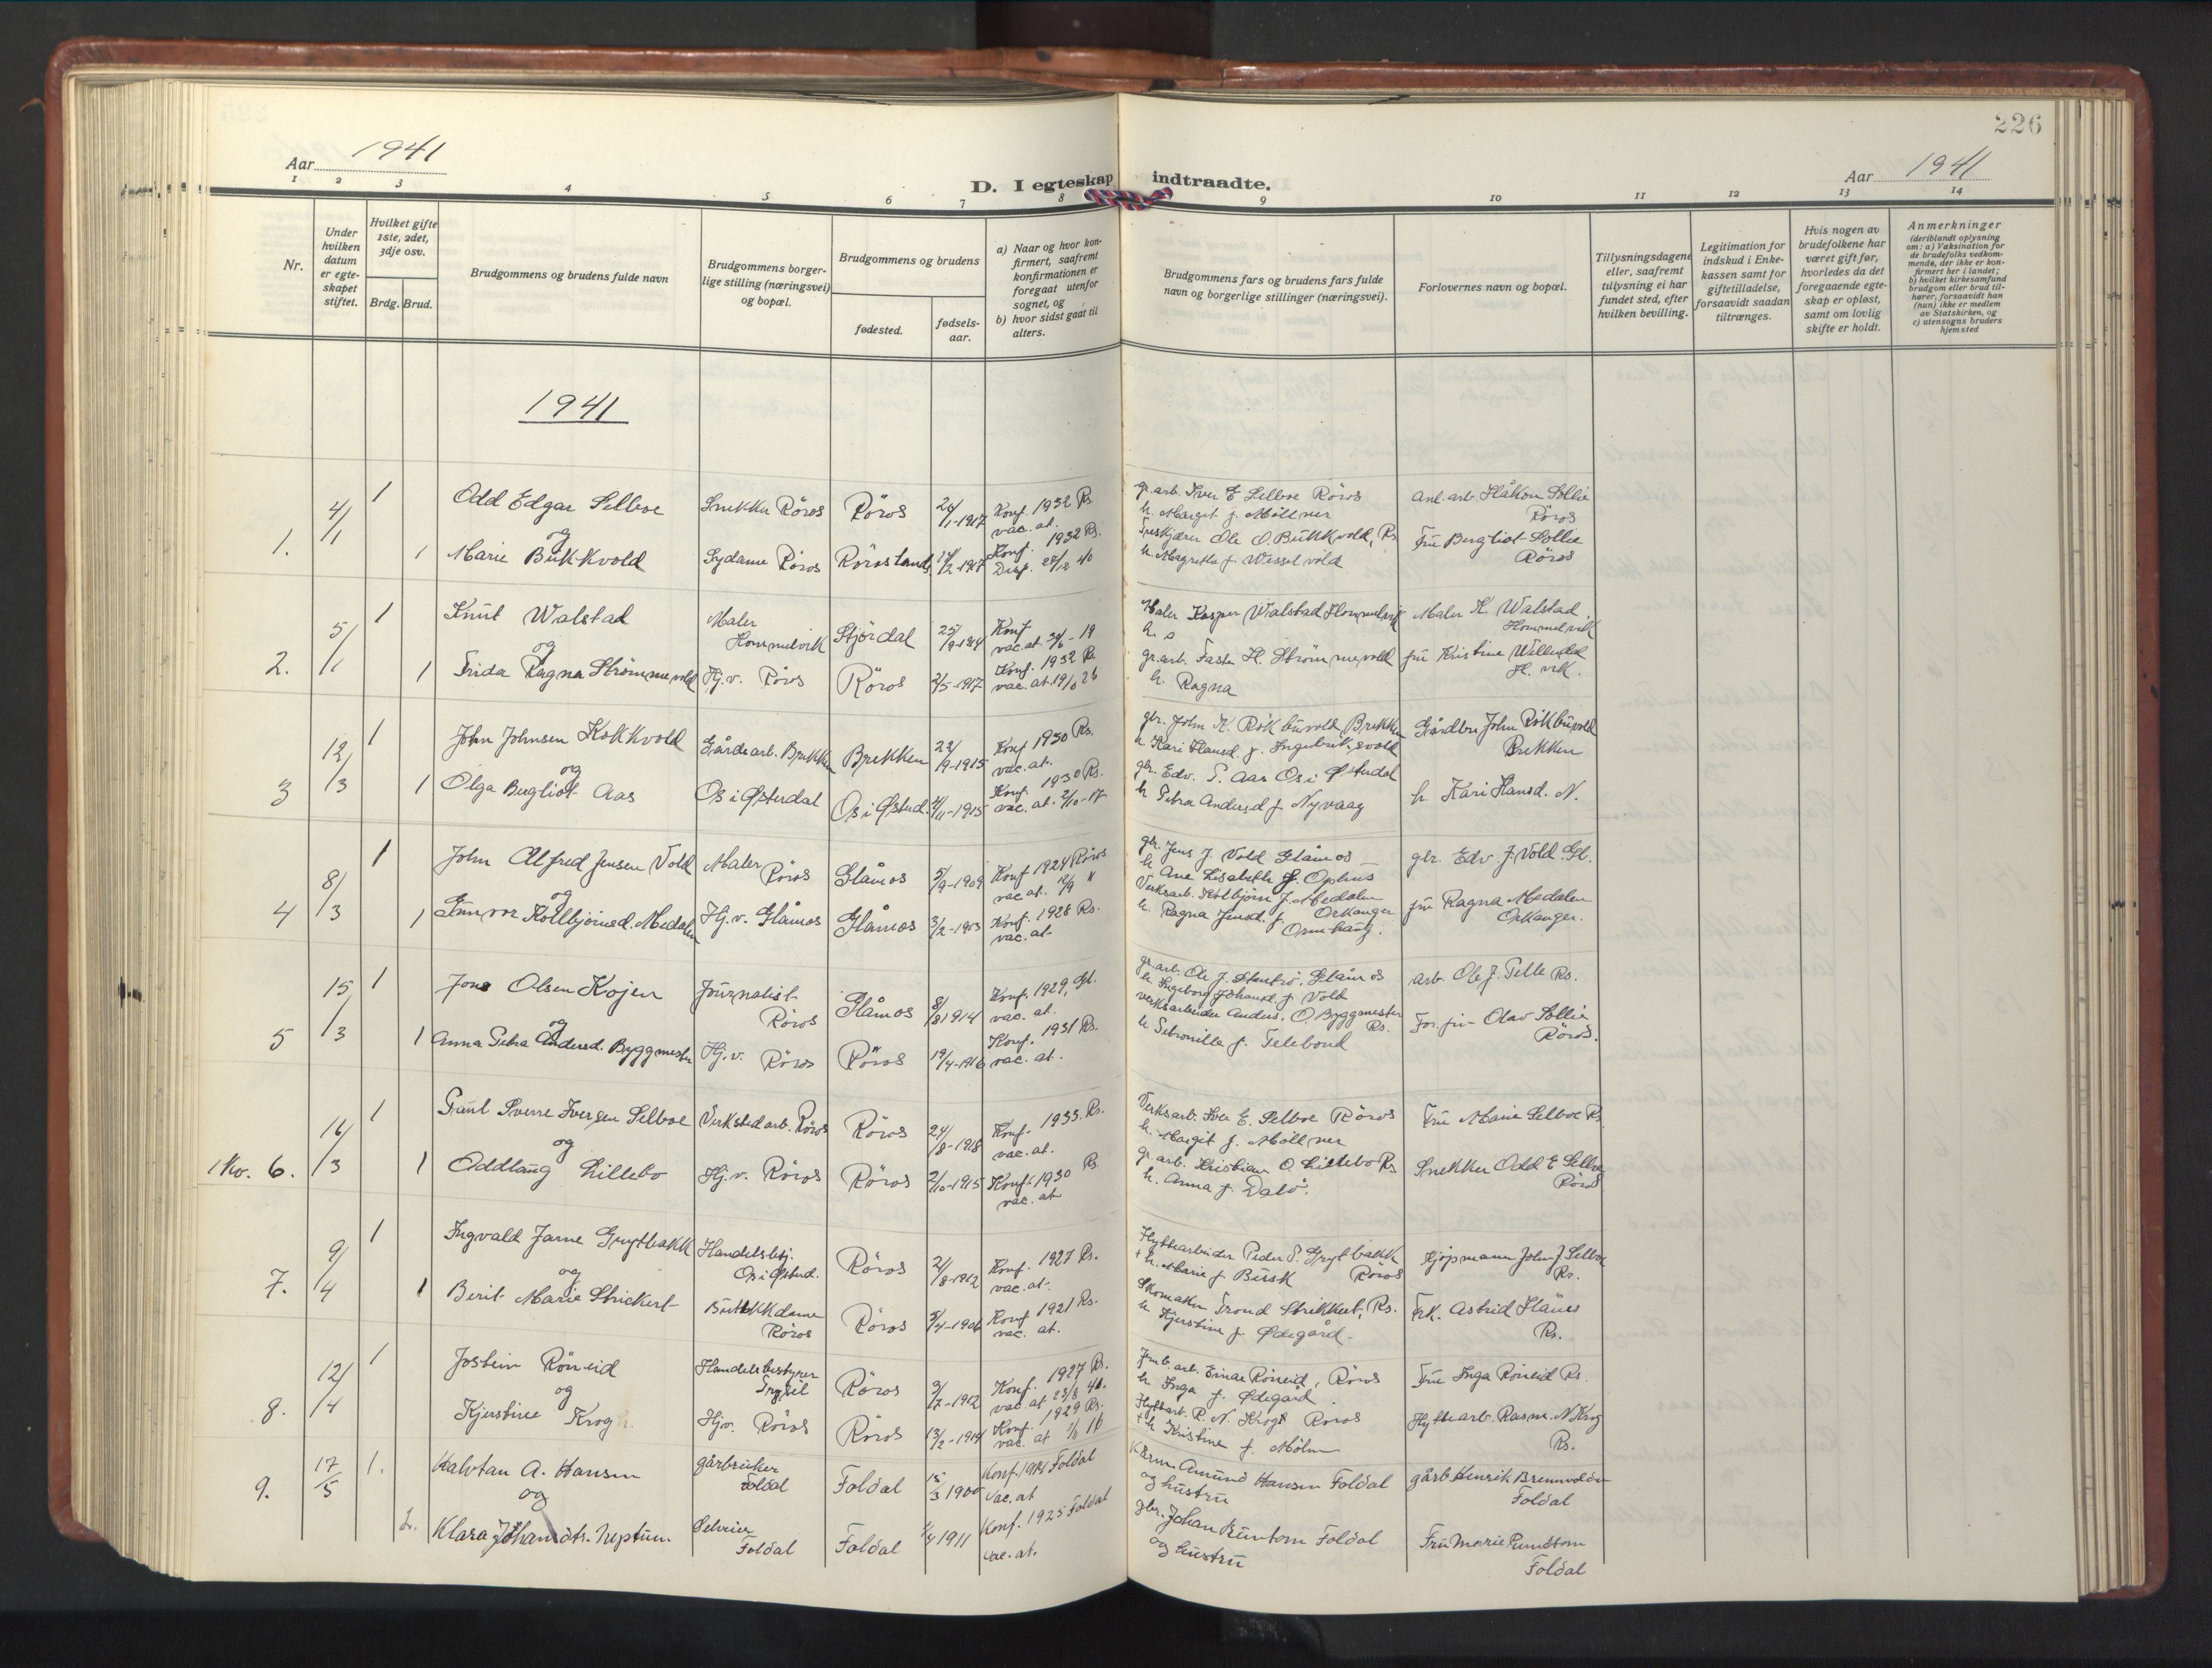 226
Aar 1941
Aar 1941
D. I egteskap indtraadte.
1 2 3 4 5 6 7 8 9 10 11 12 13 14
Nr.
Under hvilken datum er egte-skapet stiftet.
Hvilket gifte 1ste, 2det, 3dje osv.
Brdg. Brud.
Brudgommens og brudens fulde navn
Brudgommens borger-lige stilling (næringsvei) og bopæl.
Brudgommens og brudens
fødested.
fødsels-aar.
a) Naar og hvor kon-firmert, saafremt konfirmationen er foregaat utenfor sognet, og
b) hvor sidst gaat til alters.
Brudgommens fars og brudens fars fulde navn og borgerlige stillinger (næringsvei).
Forlovernes navn og bopæl.
Tillysningsdagene eller, saafremt tillysning ei har fundet sted, efter hvilken bevilling.
Legitimation for indskud i Enke-kassen samt for giftetilladelse, forsaavidt saadan tiltrænges.
Hvis nogen av brudefolkene har været gift før, hvorledes da det foregaaende egte-skap er opløst, samt om lovlig skifte er holdt.
Anmerkninger (deriblandt oplysning om: a) Vaksination for de brudefolks vedkom-mende, der ikke er kon-firmert her i landet; b) hvilket kirkesamfund brudgom eller brud til-hører, forsaavidt han (hun) ikke er medlem av Statskirken, og c) utensogns bruders hjemsted
1941
1. 4/1 1 Odd Edgar Selboe Snekker Röros Röros 1/1-1917 Konf. 1932 Rs. vac. at. gr.arb. Iver E Selboe Röros h. Margit f. Möllner anl. arb. Håkon Sollie Röros
og
1 Marie Bukkvold Sydame Röros Röros Lands. /2-1917 Konf. 1932 Rs. Disp. 27/12 40 Ole O. Bukkvold, Rs h. Magrethe f. Wessel vold Fru Bergliot Sollie Röros
2. 5/1 1 Knut Walstad Maler Hommelvik Stjördal 25/9-1914 Konf vac. at Maler Kasper Walstad Hommelvik Maler K. Walstad Hommelvik
og
1 Frida Ragna Strömmevold Hj.v. Röros Röros 2/5-1917 Konf. 1932 Rs vac. at gr.arb. H. Strömmevold h. Ragna fru Kristine H. vik.
3 12/3 1 John Johnsen Kokkvold Gårdsarb. Brekken Brekken 22/9-1915 Konf 1930 Rs. vac. at. gbr. John K. Brekken h Kari Hansd. f. Gårdbr John Brekken
og
1 Olga Bergliot Aas Os i Østerdal Os i Østerd. 4/11-1915 Konf. 1930 Rs. vac. at. 2/10-17 gbr. Edv. P. Aas Os i Østerdal h Petra Andersd f. Nyvaag h. Kari Hansd. N.
4 8/3 1 John Alfred Jensen Vold Maler Röros Glåmos 5/9-1909 Konf 1924 Röros vac. at. gbr. Jens J. Vold Glåmos h Ane Lisabeth f. Ophus gbr. Edv. J. Vold Gl.
og
1 Gunvor Kolbjörnsd. Medalen Hj.v. Glåmos Glåmos 3/2-1913 Konf. 1928 Rs. vac. at Verksarb. Kolbjörn J. Medalen Orkanger h. Ragna Jensd. f. Ormhaug. fru Ragna Medalen Orkanger.
5 15/3 1 Jons Olsen Kojen Journalist Röros Glåmos 8/8 1914 Konf. 1929, Gl. vac. at. gr.arb. Ole J. Glåmos h Ingeborg Johansd. f. Vold arb. Ole J. Rs.
og
1 Anna Petra Andersd. Byggmester Hj.v. Röros Röros 19/4-1916 Konf. 1931 Rs. vac. at. verksarbeider Anders. O. Byggmester Rs. h Petronille f. Felebond Olav Sollie Röros.
1 Kv. 6. 16/3 1 Paul Sverre Iversen Selboe Verkstedarb. Röros Röros 24/8-1918 Konf. 1933. Rs. vac. at. Verksarb. Iver E. Selboe Röros h. Margit f. Möllner Fru Marie Selboe Rs
og
1 Oddlaug Lillebo Hj.v. Röros Röros 2/10-1915 Konf. 1930 Rs. vac. at gr.arb. Kristian O. Lillebo Rs h. Anna f. Dalö. Snekker Odd E Selboe Röros
7. 9/4 1 Ingvald Jarne Grytbakk Handelsbetj. Os i Østerd. Röros 2/8-1912 Konf. 1927 Rs. vac. at. Hyttearbeider Peder P. Grytbakk Röros + h. Marie f Busk Kjöpmann John J. Selboe Rs.
og
1 Berit Marie Strickert Butikkdame Röros Röros 5/4-1906 Konf 1921 Rs. vac. at. Skomaker Trond Strikkert, Rs. h Kjerstine f. Ødegård. Frk. Astrid Rs.
8. 12/4 1 Jostein Röneid Handelsbestyrer Trysil Röros 3/7-1912 Konf. 1927 Rs. vac. at 23/8 40. Jernb. arb. Einar Röneid, Röros h Inga f. Ødegård. Fru Inga Röneid Rs.
og
Kjerstine Krogh Hjv. Röros Röros 13/2-1914 Konf. 1929 Rs. vac. at Hyttarb. R. N. Krogh Röros + h Kristine f. Mölmn Hyttearb. Rasm. N Krog Rs.
9. 17/5 1. Halvtan A. Hansen gårbruker Foldal Foldal 15/3 1900 Konf. 1914 Foldal vac. at Amund Hansen Foldal og hustru gårb Henrik Brennvolden Foldal
og
2. Klara Johansdtr. Neptun Foldal Foldal 1/4 1911 Konf. 1925 Foldal vac. at. gbr. Johan Runtom Foldal og hustru Fru Marie Rundtom Foldal